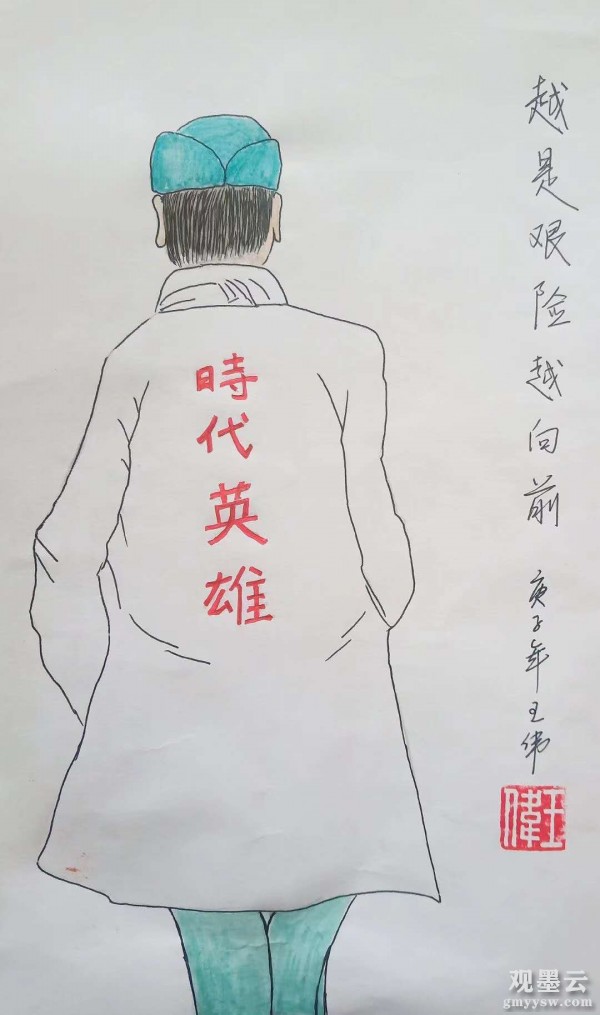 越是艰险越向前
庚子年王伟
時代英雄
王偉
观墨云
gmyysw.com